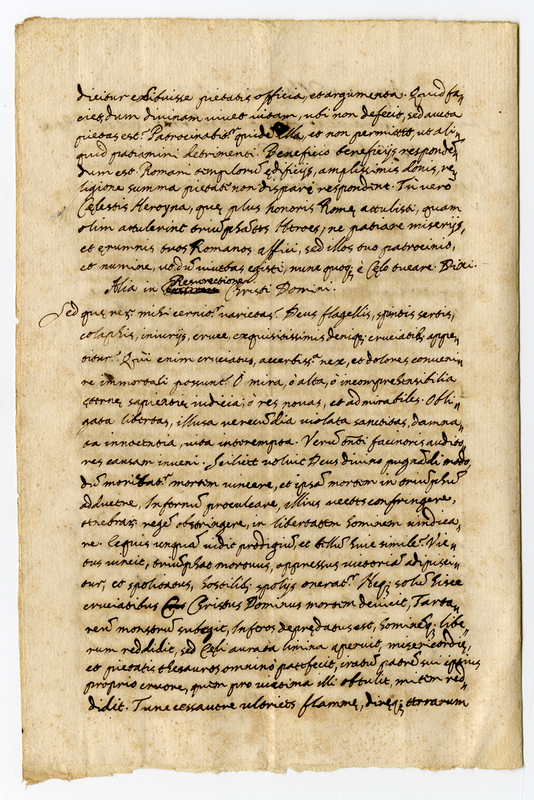 dicitur exhibuisse pietatis officia, et argumenta. Quid fa„
cies, dum divinam vivet vitam, ubi non defecit, sed aucta
pietas est? Patrocinabit quidē illa, et non permittet, ut ali„
quid patiamini detrimenti. Beneficio beneficijs respondē„
dum est. Romani templorū ędificijs, amplissimis donis, re„
ligione summa pietati non dispari respondent. Tu vero
Cęlestis Heroyna, quę plus honoris Romę attulisti, quam
olim attulerint triūphātes Heroes, ne patiare miserijs,
et ęrumnis tuos Romanos affici, sed illos tuo patrocinio,
et numine, ut dū vivebas egisti, nunc quoq; è Cęlo tueare. Dixi.
Alia in Resurectione Christi Domini.
Sed quę rerū mihi cernitr varietas? Deus flagellis, spineis sertis,
colaphis, iniurijs, cruce, exquisitissimis deniq; cruciatibs appe„
titur? Qui enim cruciatus, acerbissa nex, et dolores conveni„
re immortali possunt? O mira, ò alta, ò incomprehensibilia
ęternę sapientię iudicia; ò res novas, et admirabiles. Obli„
gata libertas, illusa verecūdia violata sanctitas, damna„
ta innocentia, vita interempta. Verū tāti facinoris audito„
res causam inveni. Scilicet voluit Deus divino pugnādi modo,
dū moribats mortem vincere, et ipsā mortem in triūphū
adducere, Infernū proculcare, illius vectes confringere,
tenebrarū regē obstringere, in libertatem hominem vindica„
re. Ecquis unquā vidit prodigiū, et bellū huic simile? Vic„
tus vincit, triūphat mortuus, oppressus victoriā adipisci„
tur, et spoliatus, hostilibs spolijs oneratr. Neq; solū hisce
cruciatibus Christus Dominus mortem devicit, Tarta„
reū monstrū subegit, Inferos depredatus est, hominēq; libe„
rum reddidit, sed Cęli aurata limina aperuit, misericordię,
et pietatis thesauros omninò patefecit, iratū patrē sui ipsius
proprio cruore, quem pro victima illi obtulit, mitem red„
didit. Tunc cessavere ultrices flammę, diręq; terrarum